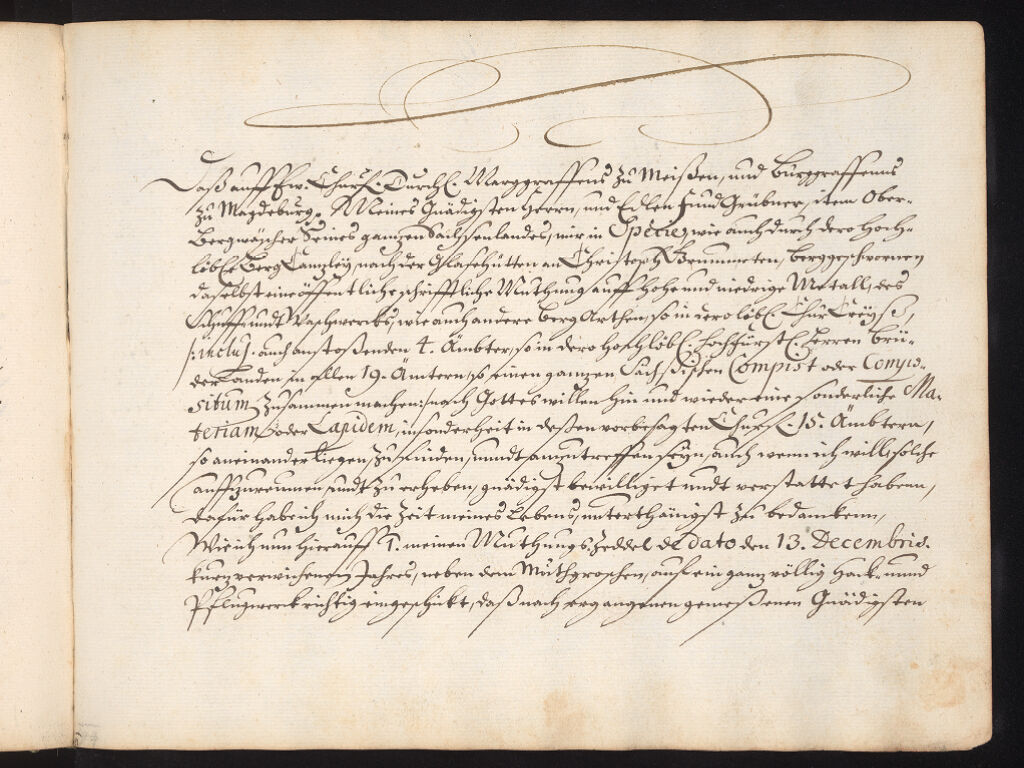 Daß auff Ew. Churf. Durchl. Marggraffens zu Meißen, und Burggraffenns
zu Magdeburg. Meines Gnädigsten Herrn, und Edlen Fund Grübner, item Ober-
Bergwäscher Seines ganzen Sachsenlandes, mir in Specie, wie auch durch dero Hoch-
löbl. Berg Canzley, nach der Glasehütten an Christoph Brummeten, berggeschwornen
daselbst eine öffentliche schrifftliche Muthung auff hohe und niedrige Metall, des
Schuffr undt Waschwercks, wie auch andere Berg Arthen, so in dero löbl. Chur Creyße,
/:inclus. auch anstoßenden 4. Ämbter, so in dero Hochlöbl. Hochfürstl. Herren Brü-
der Landen in allen 19. Ämtern, so einen ganzen Sächsischen Compist oder Compo-
situm zusammen machen:/ nach Gottes willen hin und wieder eine sonderliche Ma-
teriam oder Lapidem, in sonderheit in deßen vorbesagten Churf. 15. Ämbtern,
so aneinander liegen, zu finden, undt anzutreffen seyn, auch wenn ich will, solche
auffzuraumen, undt zu erheben, gnädigst bewilliget undt verstattet haben,
dafür habe ich mich die Zeit meines Lebens, unterthänigst zu bedancken,
Wie ich nun hierauff 1. meinen Muthungs Zeddel de dato den 13. Decembris.
kurz verwichenen Jahres, neben dem Muthgroschen, auf ein ganz völlig Hack- unnd
Pflugwerck richtig eingeschickt, daß nach ergangenen gemeßenen Gnädigsten